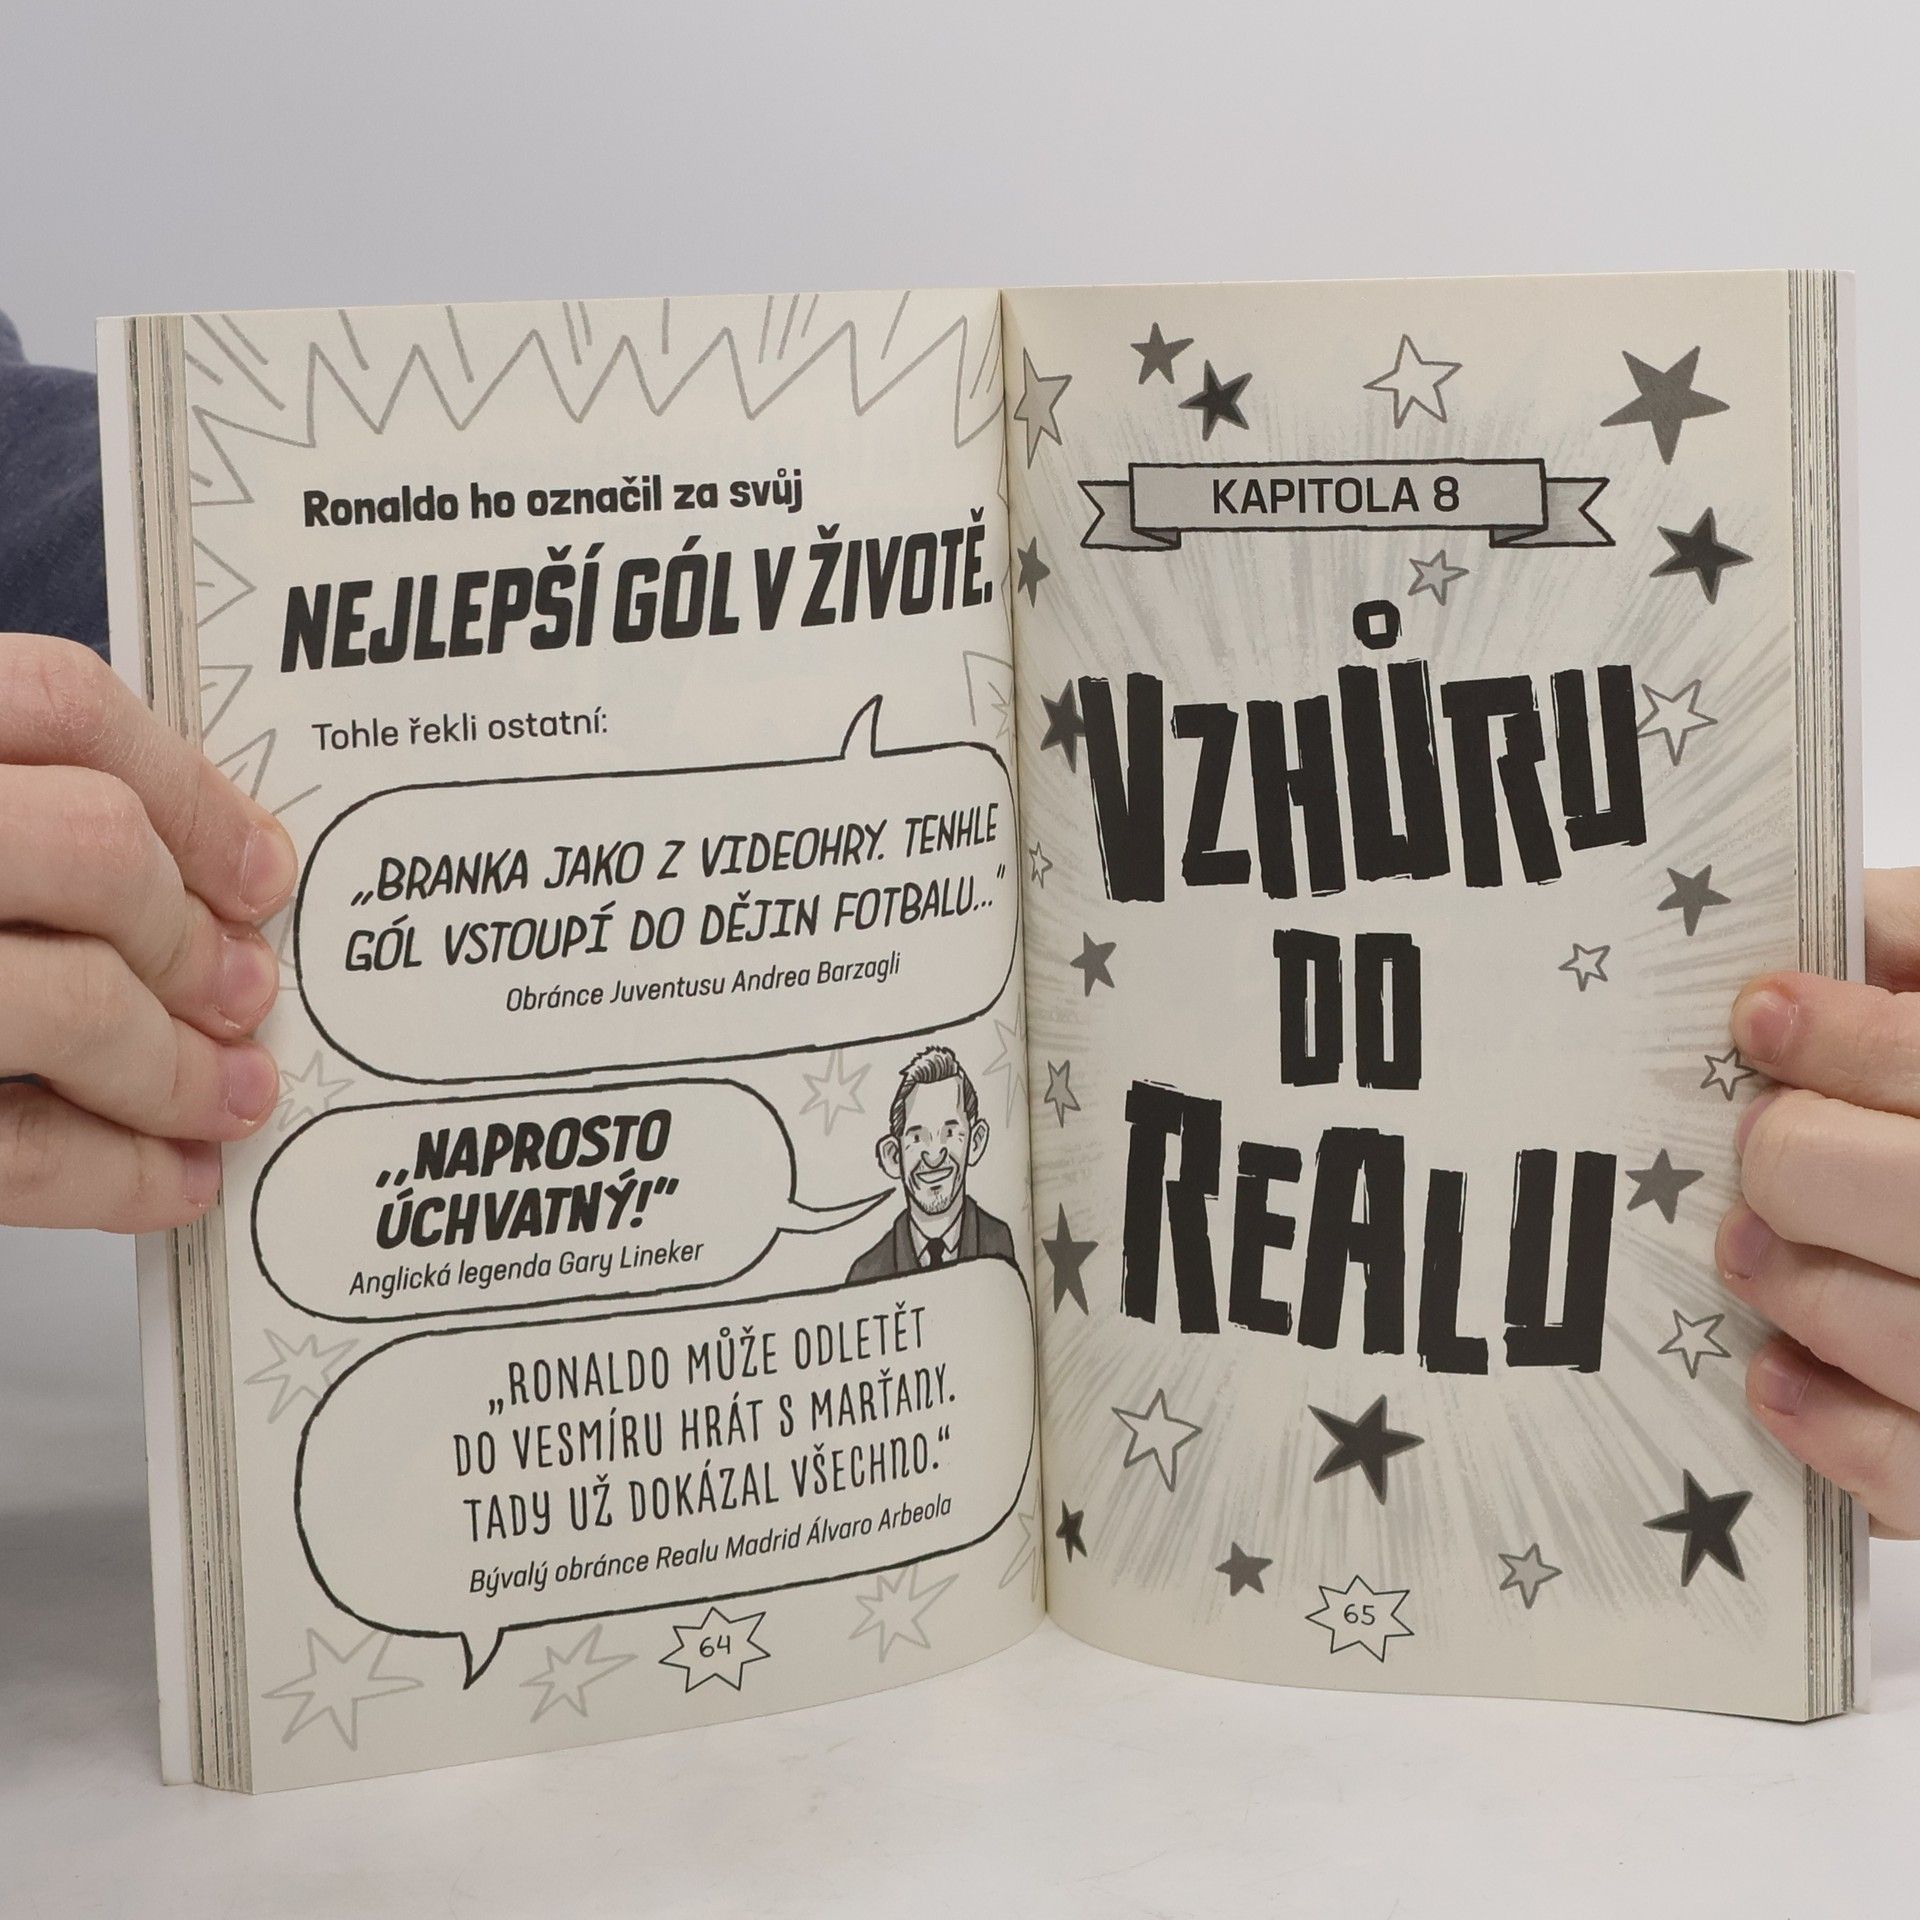 Ronaldo ho označil za svůj
NEJLEPŠÍ GÓL V ŽIVOTĚ.
Tohle řekli ostatní:
„BRANKA JAKO Z VIDEOHRY. TENHLE
GÓL VSTOUPÍ DO DĚJIN FOTBALU...”
Obránce Juventusu Andrea Barzagli
„NAPROSTO
ÚCHVATNÝ!”
Anglická legenda Gary Lineker
„RONALDO MŮŽE ODLETĚT
DO VESMÍRU HRÁT S MARŤANY.
TADY UŽ DOKÁZAL VŠECHNO.“
Bývalý obránce Realu Madrid Álvaro Arbeola
64
KAPITOLA 8
VZHŮRU
DO
REALU
65